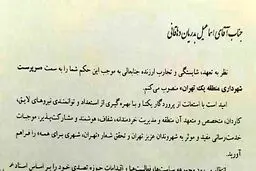 جناب آقای اسماعیل بدریان دهاقانی
نظر به تعهد، شایستگی و تجارب ارزنده جنابعالی به موجب این حکم شما را به سمت «سرپرست
شهرداری منطقه یک تهران» منصوب می‌کنم.
امید است با استعانت از پروردگار یکتا و با بهره گیری از استعداد و توانمندی نیروهای لایق،
کاردان، متخصص و متعهد آن منطقه و مدیریت خردمندانه، شفاف، هوشمند و مشارکت‌پذیر، موجبات
خدمت‌رسانی مفید و موثر به شهروندان عزیز تهران و تحقق شعار «تهران، شهری برای همه» را فراهم
آورید.